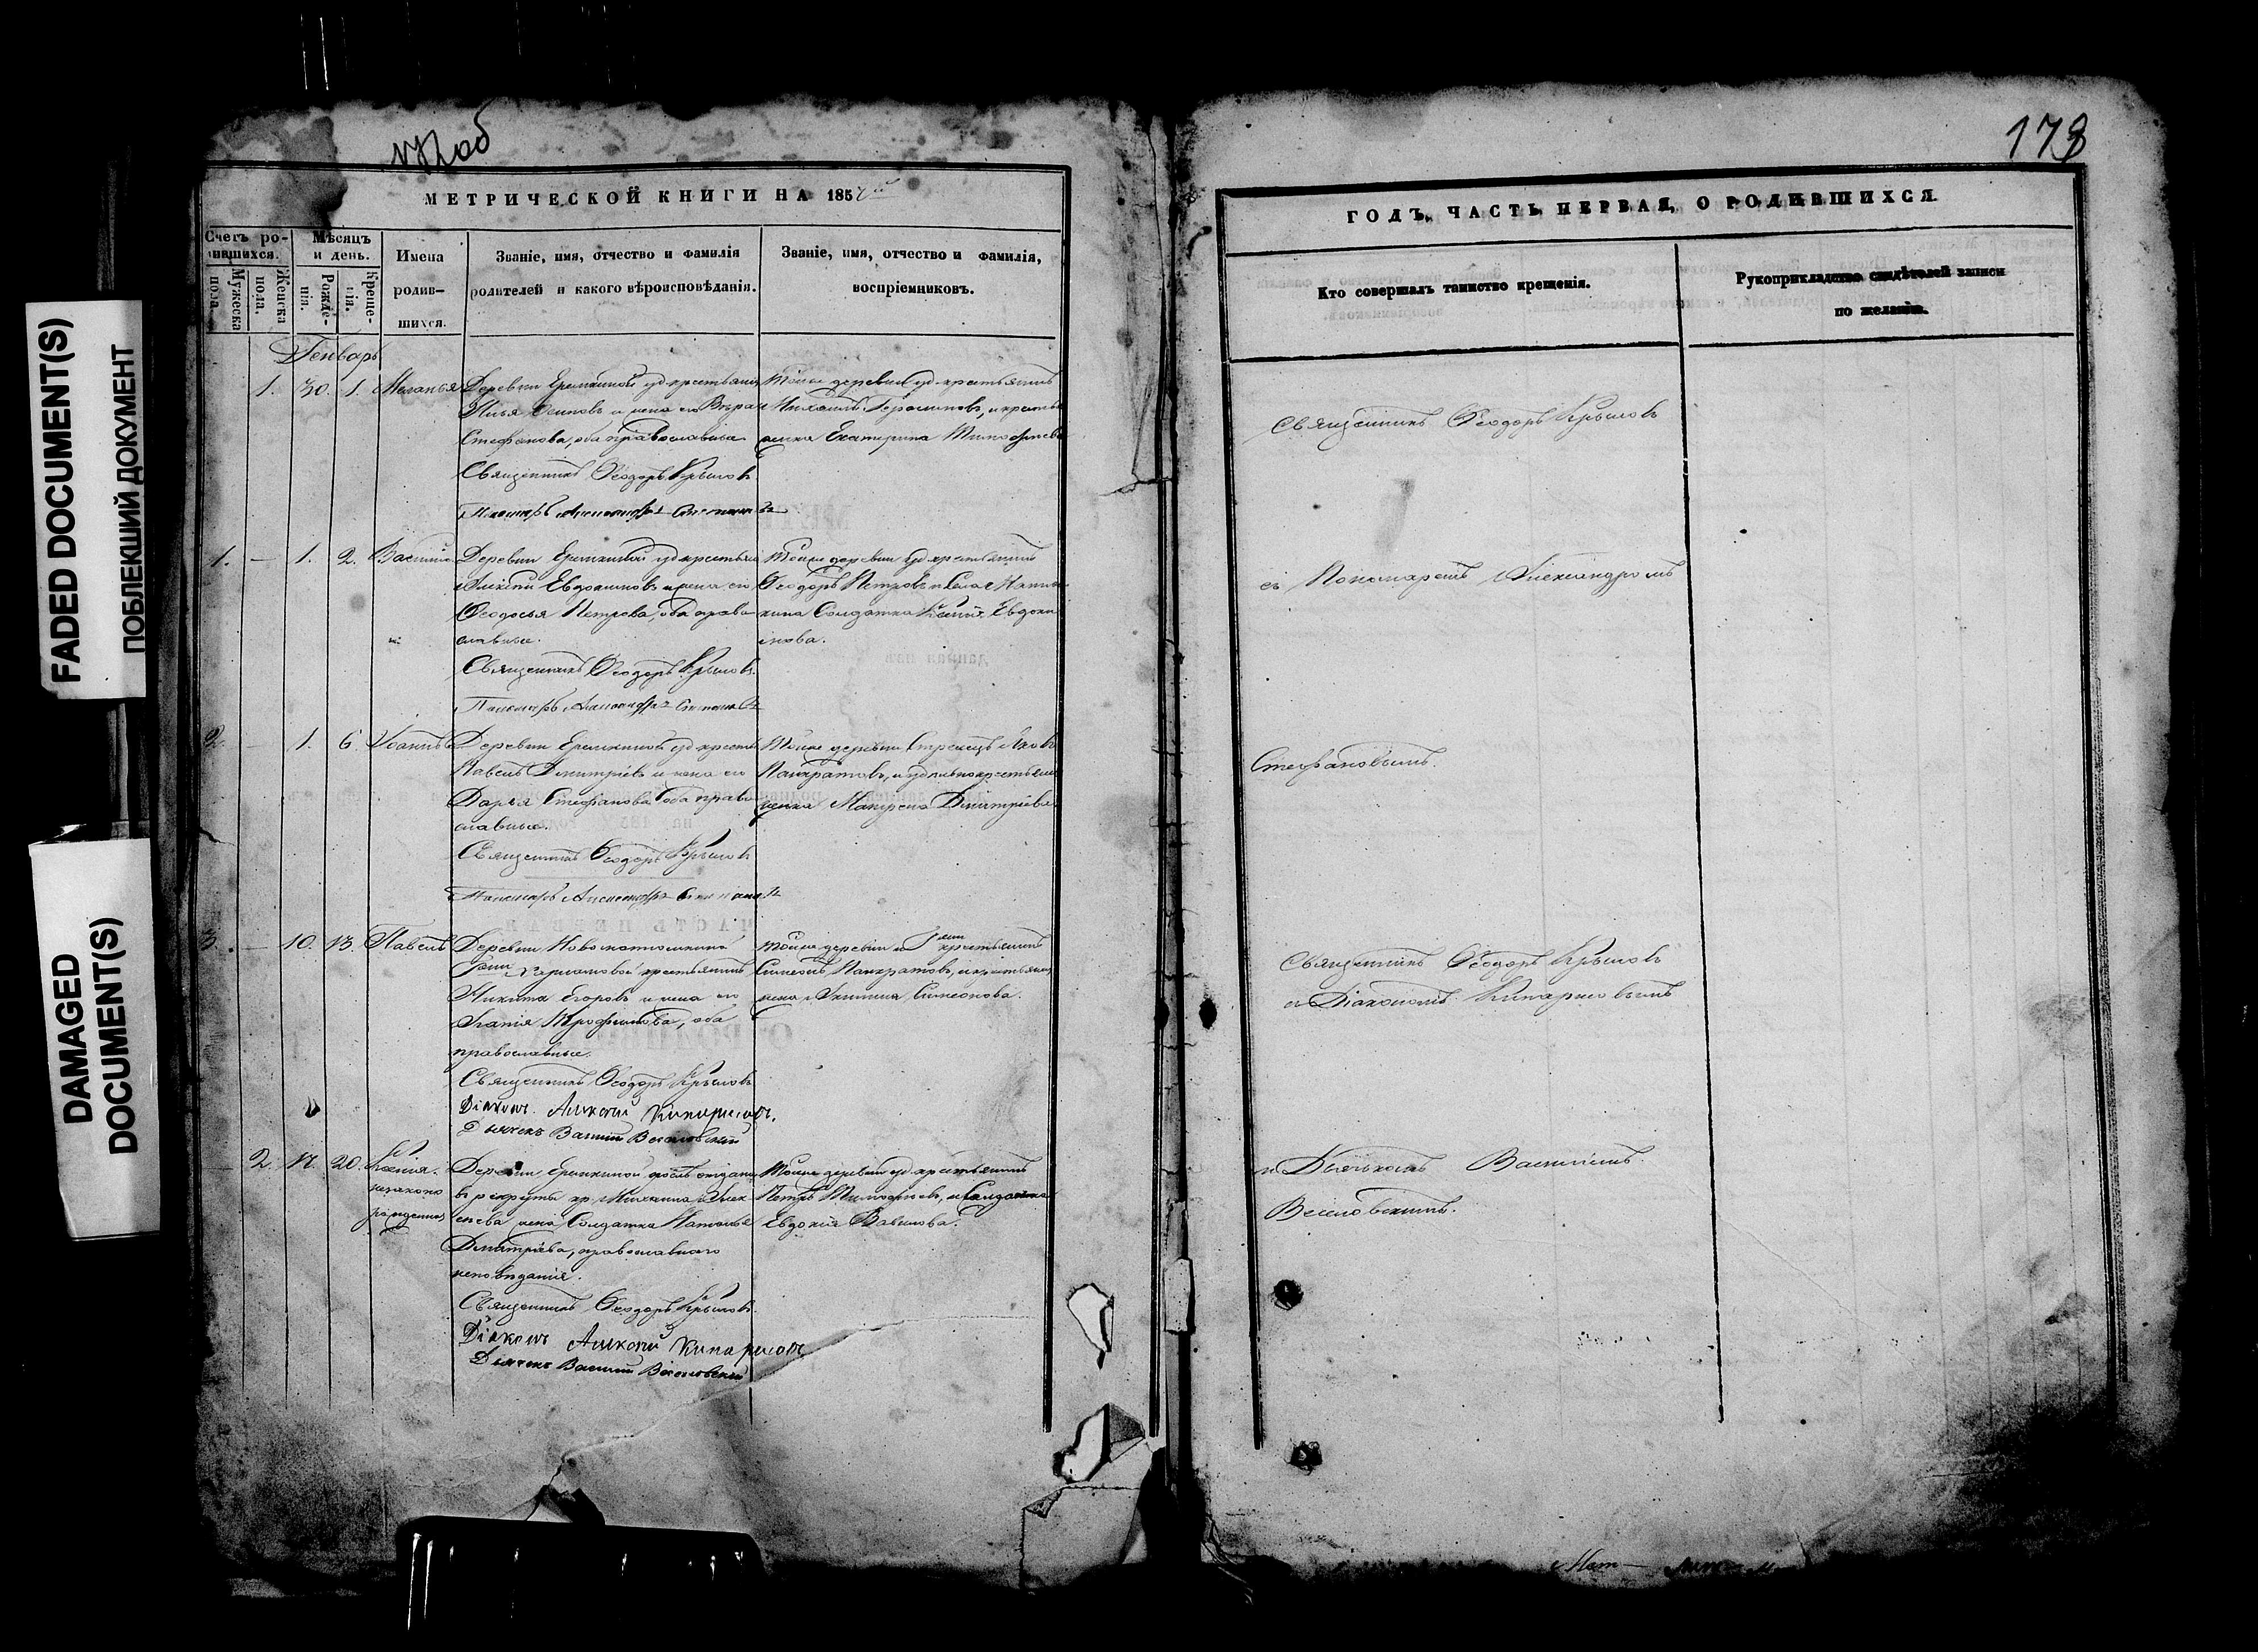 FADED DOCUMENT(S)
ПОБЛЕКШИЙ ДОКУМЕНТ
DAMAGED
DOCUMENT(S)
об
МЕТРИЧЕСКОЙ КНИГИ НА 185
Счетъ ро-
дившихся.
Мѣсяцъ
и день.
Имена
родив-
шихся.
Званіе, имя, отчество и фамилія
родителей и какого вѣроисповѣданія.
Званіе, имя, отчество и фамилія,
воспріемниковъ.
Мужеска
пола.
Женска
пола.
Рожде-
нія.
Креще-
нія.
Генварь
1. 30. 1. Меланья
Деревни Еремкиной уд. крестьянинъ
Илья Осиповъ и жена его
Стефанова, оба православные
Священникъ Ѳеодоръ Крыловъ
Пономарь Александръ Стефановъ
Тойже деревни уд. крестьянинъ
Михаилъ Герасимовъ, и крестья
нка Екатерина Тимофеева
1. — 1. 2. Василій
Деревни Еремкиной уд. крестьян
Алексѣй Евдокимовъ и жена его
Ѳеодосья Петрова, оба право
славные.
Священникъ Ѳеодоръ Крыловъ.
Пономарь Александръ Стефановъ
Тойже деревни уд. крестьянинъ
Ѳеодоръ Петровъ и Села
кина Солдатка Евдоки
мова.
2. — 1. 6. Іоаннъ
Деревни Еремкиной уд. крестьян
Павелъ Дмитріевъ и жена его
Дарья Стефанова оба право
славные.
Священникъ Ѳеодоръ Крыловъ
Пономарь Александръ Стефановъ
Тойже деревни Стрѣлецъ Яковъ
Панкратовъ, и удѣльнокрестьян
ченка Матрена Дмитріева
3. — 10. 13. Павелъ
Деревни
крестьянинъ
Никита Егоровъ и жена его
Агапія Трофимова, оба
православные.
Священникъ Ѳеодоръ Крыловъ
Діаконъ Алексѣй Кипарисовъ.
Дьячекъ Василій Веселовскій
Тойже деревни крестьянинъ
Симеонъ Панкратовъ, и крестьян
ченка Акилина Симеонова.
2. 17. 20. Ксенія.
незаконо
рожденная
Деревни Еремкиной отданн
въ рекруты кр. Алек
сѣева жена Солдатка Наталья
Дмитріева, православнаго
исповѣданія.
Священникъ Ѳеодоръ Крыловъ.
Діаконъ Алексѣй Кипарисовъ
Дьячекъ Василій Веселовскій
Тойже деревни уд. крестьянинъ
Петръ Тимофеевъ, и Солдатка
Евдокія Вавилова.
173
ГОДЪ, ЧАСТЬ ПЕРВАЯ, О РОДИВШИХСЯ.
Кто совершалъ таинство крещенія.
Рукоприкладство свидѣтелей записи
по желанію.
Священникъ Ѳеодоръ Крыловъ
съ Пономаремъ Александромъ
Стефановымъ.
Священникъ Ѳеодоръ Крыловъ
съ Діакономъ Кипарисовымъ
и Дьячкомъ Василіемъ
Веселовскимъ.